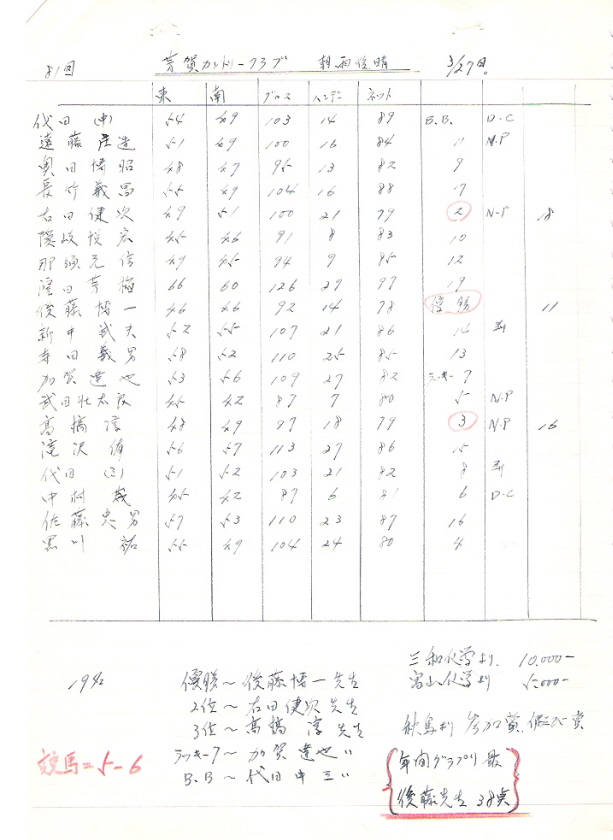 81回 芳賀カントリークラブ 3/27日
東 南 グロス ハンデー ネット
代田(中) 54 49 103 14 89 B.B. D.C
遠藤 51 49 100 16 84 11 N.P
奥田博昭 48 47 95 13 82 9
長竹義 55 49 104 16 88 17
右田健次 49 51 100 21 79 2 N-P 18
隠岐悦宏 45 46 91 8 83 10
那須元信 49 45 94 9 85 12
窪田芳 66 60 126 29 97 19
後藤博一 46 46 92 14 78 優勝 11
新井武夫 52 55 107 21 86 14
寺田義男 58 52 110 25 85 13
加賀達也 53 56 109 27 82 ラッキー7
武田壮太 45 42 87 7 80 5 N.P
高橋淳 48 49 97 18 79 3 N.P 16
滝沢 56 57 113 27 86 15
代田(三) 51 52 103 21 82 8
中村 45 42 87 6 81 6 D-C
佐藤 男 57 53 110 23 87 16
黒川 祐 55 49 104 24 80 4
三和化学より 10.000-
富山化学より 5.000-
優勝~後藤博一先生
2位~右田健次先生
3位~高橋 淳先生
参加賞
ラッキー7~加賀達也 〃
B.B~代田中三 〃
競馬=5-6
年間グランプリ 最
後藤先生 38点